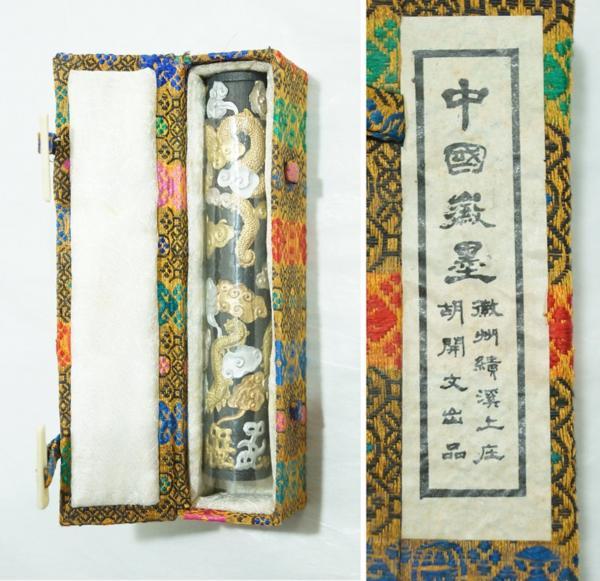 中國徽墨
徽州績溪上庄
胡開文出品